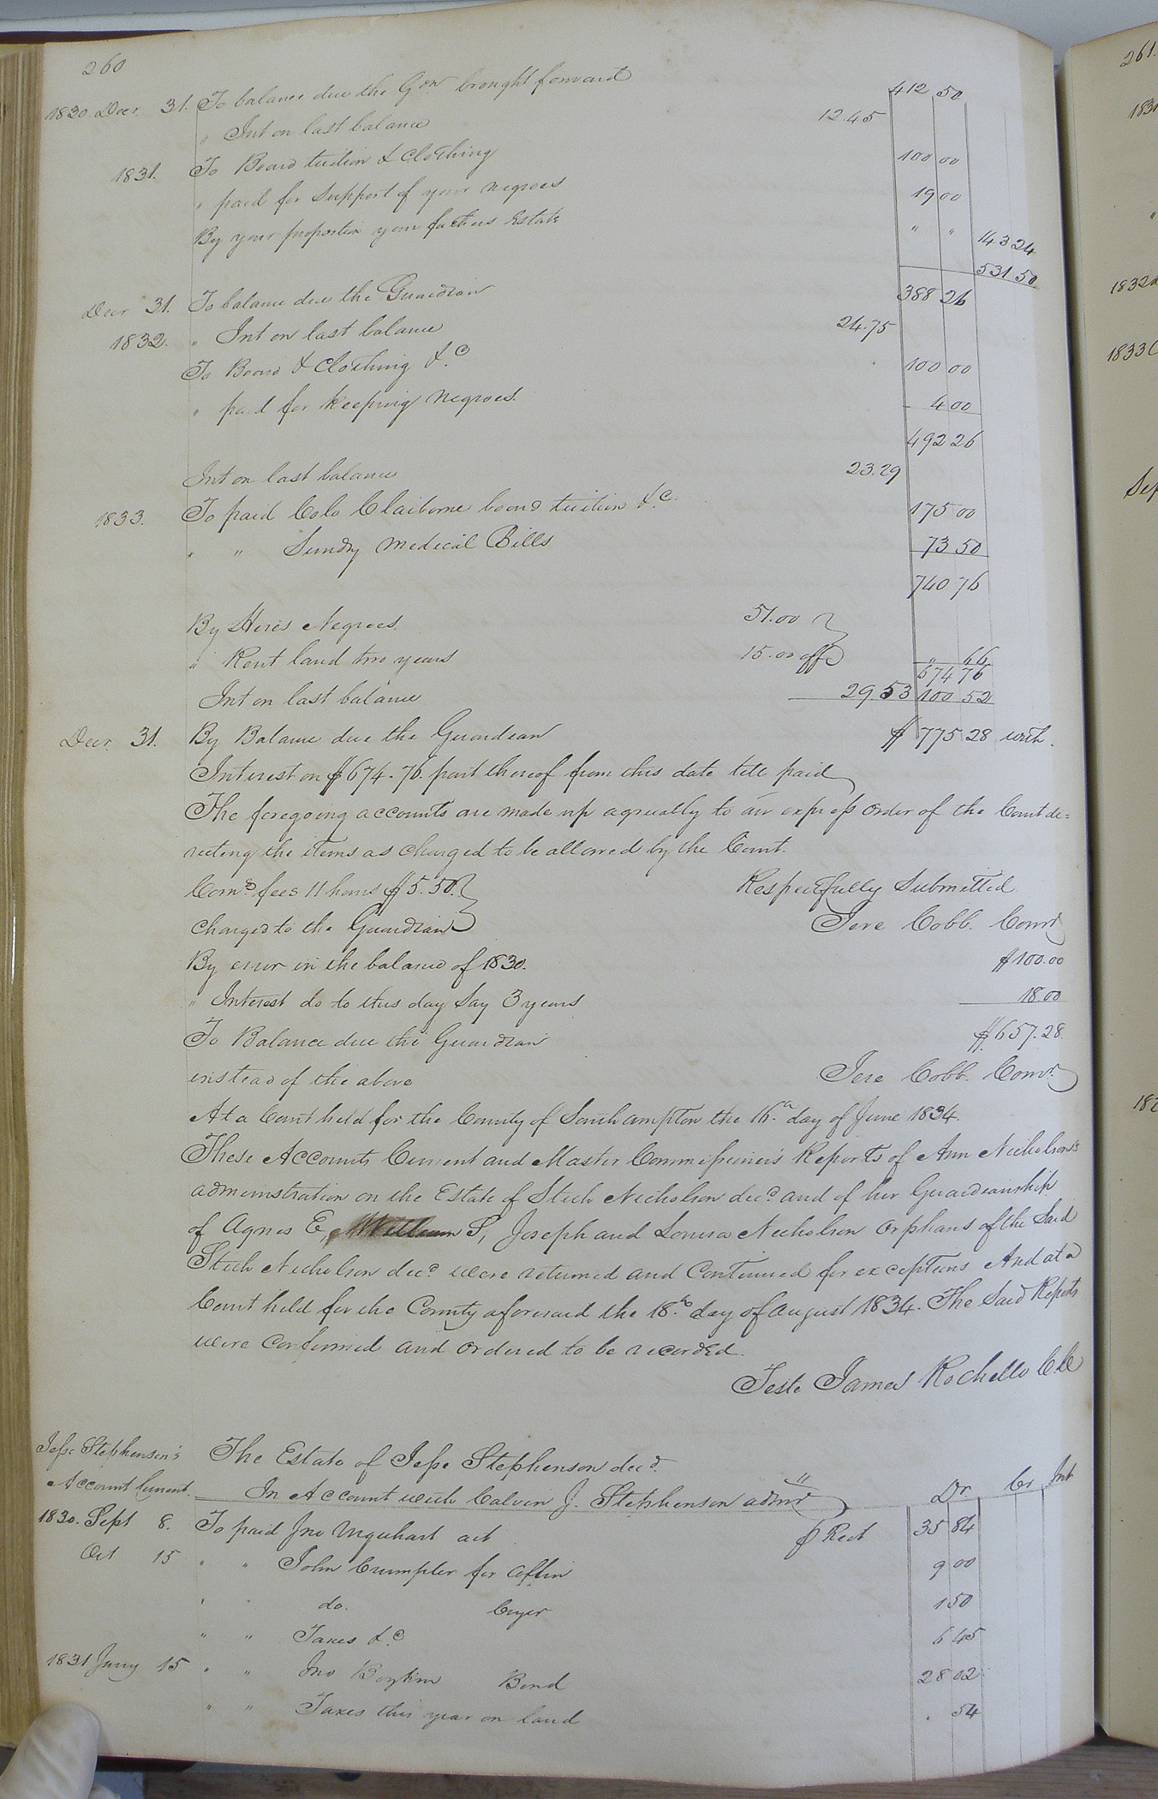 260
1830 Decr 31. To balance due the Gdn brought forward 412 50
" Int on last balance 12.45
1831. To Board tuition & Clothing 100 00
" paid for Support of your negroes 19 00
By your proportion your fathers Estate " " 143 24
531 50
Decr 31. To balance due the Guardian 388 26
1832. " Int on last balance 24.75
To Board & Clothing &c 100 00
" paid for keeping Negroes 4 00
492 26
Int on last balance 23.29
1833. To paid Colo Claiborne board tuition &c. 175 00
" " Sundry Medical Bills 73 50
740 76
By Hires Negroes 51.00
" Rent land two years 15.00 off " 66
674 76
Int on last balance 29.53 100 52
Decr 31. By Balance due the Guardian $ 775 28 with.
Interest on $674.76 part thereof from this date till paid
The foregoing accounts are made up agreeably to an express order of the Court de=
recting the items as charged to be allowed by the Court.
Coms fees 11 hours $5.50. Respectfully Submitted
Charged to the Guardian Jere Cobb. Comr
By error in the balance of 1830. $100.00
" Interest do to this day Say 3 years 18.00
To Balance due the Guardian $657.28
instead of the above Jere Cobb. Comr.
At a Court held for the County of Southampton the 16th day of June 1834.
These Accounts Current and Master Commissioner's Reports of Ann Nicholson's
administration on the Estate of Stith Nicholson decd and of her Guardianship
of Agnes E, William S, Joseph and Louisa Nicholson Orphans of the Said
Stith Nicholson decd were returned and Continued for exceptions And at a
Court held for the County aforesaid the 18th day of August 1834. The Said Reports
were Confirmed and Ordered to be recorded.
Teste James Rochelle C.C.
Jesse Stephenson's The Estate of Jesse Stephenson decd.
Account Current. In Account with Calvin J. Stephenson admr Dr Cr Int
1830. Sept 8. To paid Jno Urquhart act $ Rect 35 84
Oct 15 " " John Crumpler for Coffin 9 00
" " do. Cryer 1 50
" " Taxes &c 6 45
1831 Jany 15 " " Jno Boykin Bond 28 02
" " Taxes this year on land . 54
261.
183
"
1832
1833
Sep
183